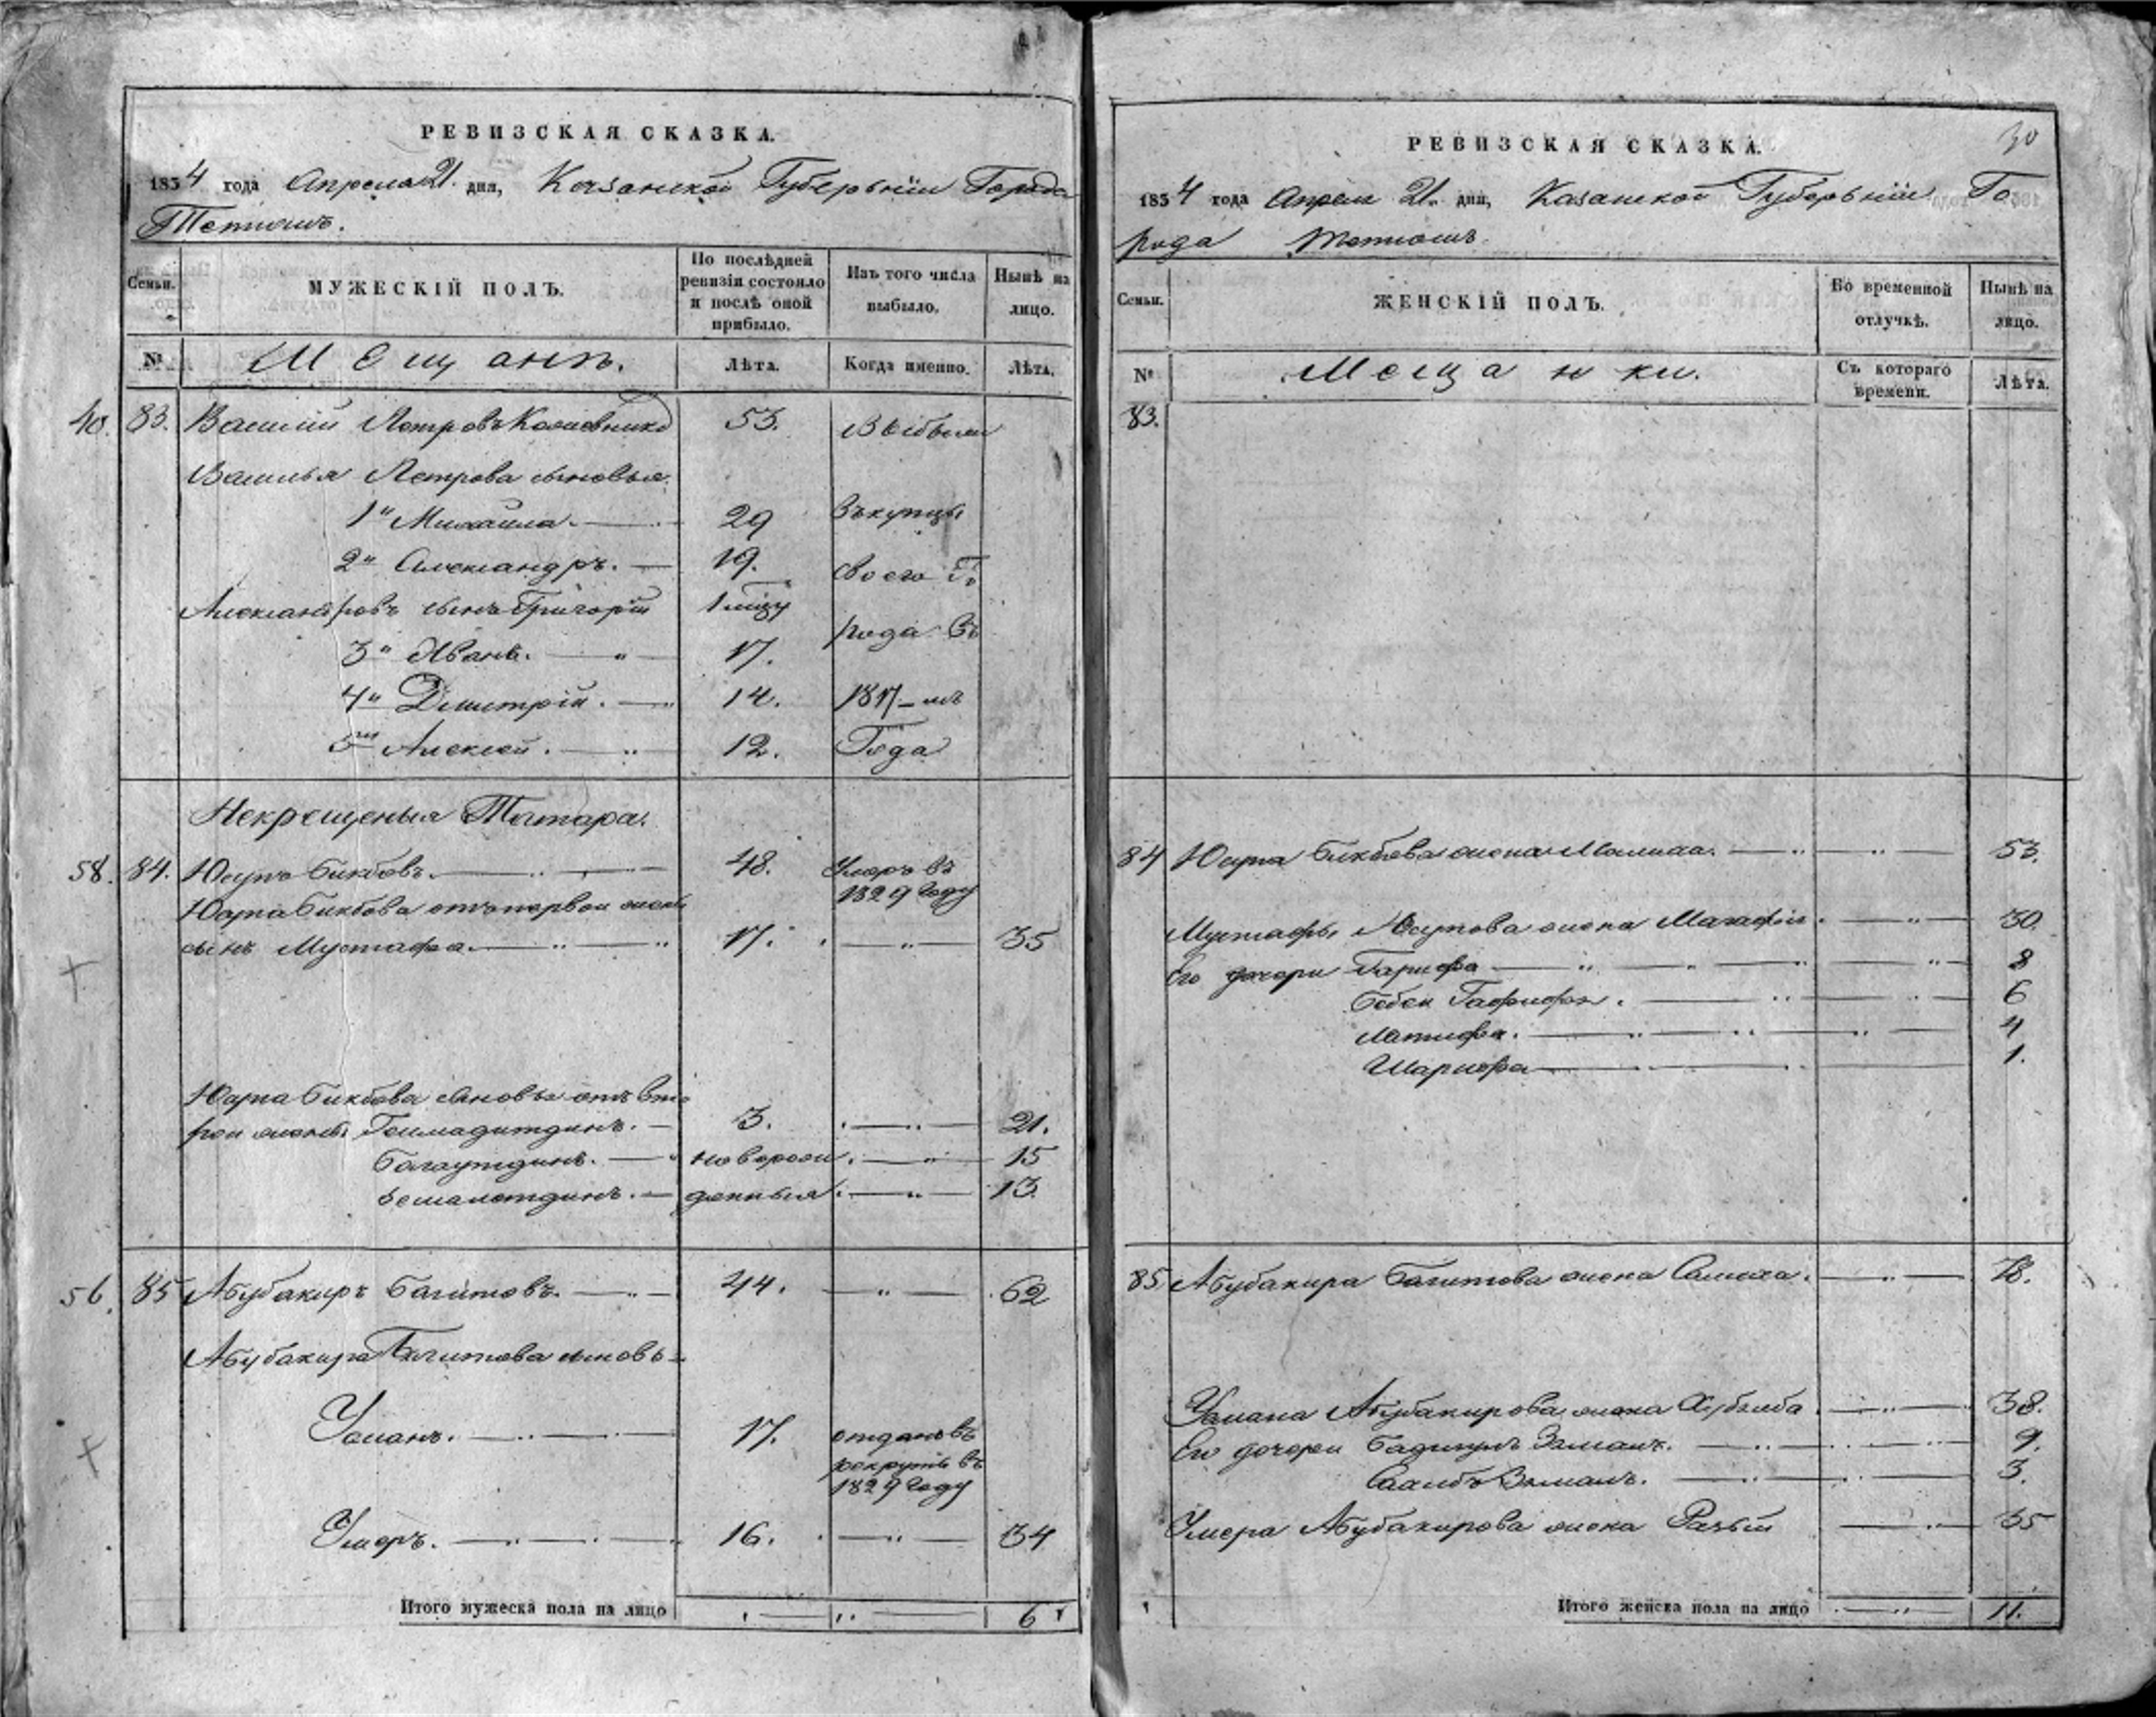 РЕВИЗСКАЯ СКАЗКА.
1834 года Апреля 21. дня, Казанской Губерьнiи Города
Тетюшъ.
Семьи.
МУЖЕСКІЙ ПОЛЪ.
По послѣдней ревизіи состояло и послѣ оной прибыло.
Изъ того числа выбыло.
Нынѣ на лицо.
№
Мещанъ.
Лѣта.
Когда именно.
Лѣта.
40. 83. Василий Петровъ 53. Выбыли
Василья Петрова сыновья
1й Михаила. 29 въ купцы
2й Александръ. 19. своего Го
Александровъ сынъ Григорiй 1 мцъ
рода въ
3й Иванъ. 17.
4й Димитрiй. 14. 1817-мъ
5й Алексей. 12. Года
Некрещеныя Татара.
58. 84. Юсупъ Бикбовъ. 48. Умеръ въ
1829 году
Юсупа Бикбова отъ первой жены
сынъ Мустафа. 17. 35
Юсупа Бикбова сыновья отъ вто
рой жены 3. 21.
Багаутдинъ. новорож 15
денныя 13.
56. 85 Абубакиръ Багитовъ. 44. 62
Абубакира Багитова сыновья
Усманъ. 17. отданъ въ
рекруты въ
1829 году
Умеръ. 16. 34
Итого мужеска пола на лицо 6
30
РЕВИЗСКАЯ СКАЗКА.
1834 года Апреля 21. дня, Казанской Губерьнiи Го
рода Тетюшъ.
Семьи.
ЖЕНСКІЙ ПОЛЪ.
Во временной отлучкѣ.
Нынѣ на лицо.
№
Мещанки.
Съ котораго времени.
Лѣта.
83.
84 Юсупа Бикбова жена 53.
Мустафы Юсупова жена 30.
Его дочери Гарифа 8
Биби 6
Латифа. 4
Шарифа 1.
85. Абубакира Багитова жена Салиха.
Усмана Абубакирова жена 38.
Его дочери 9.
3.
Умера Абубакирова жена 35
Итого женска пола на лицо 11.